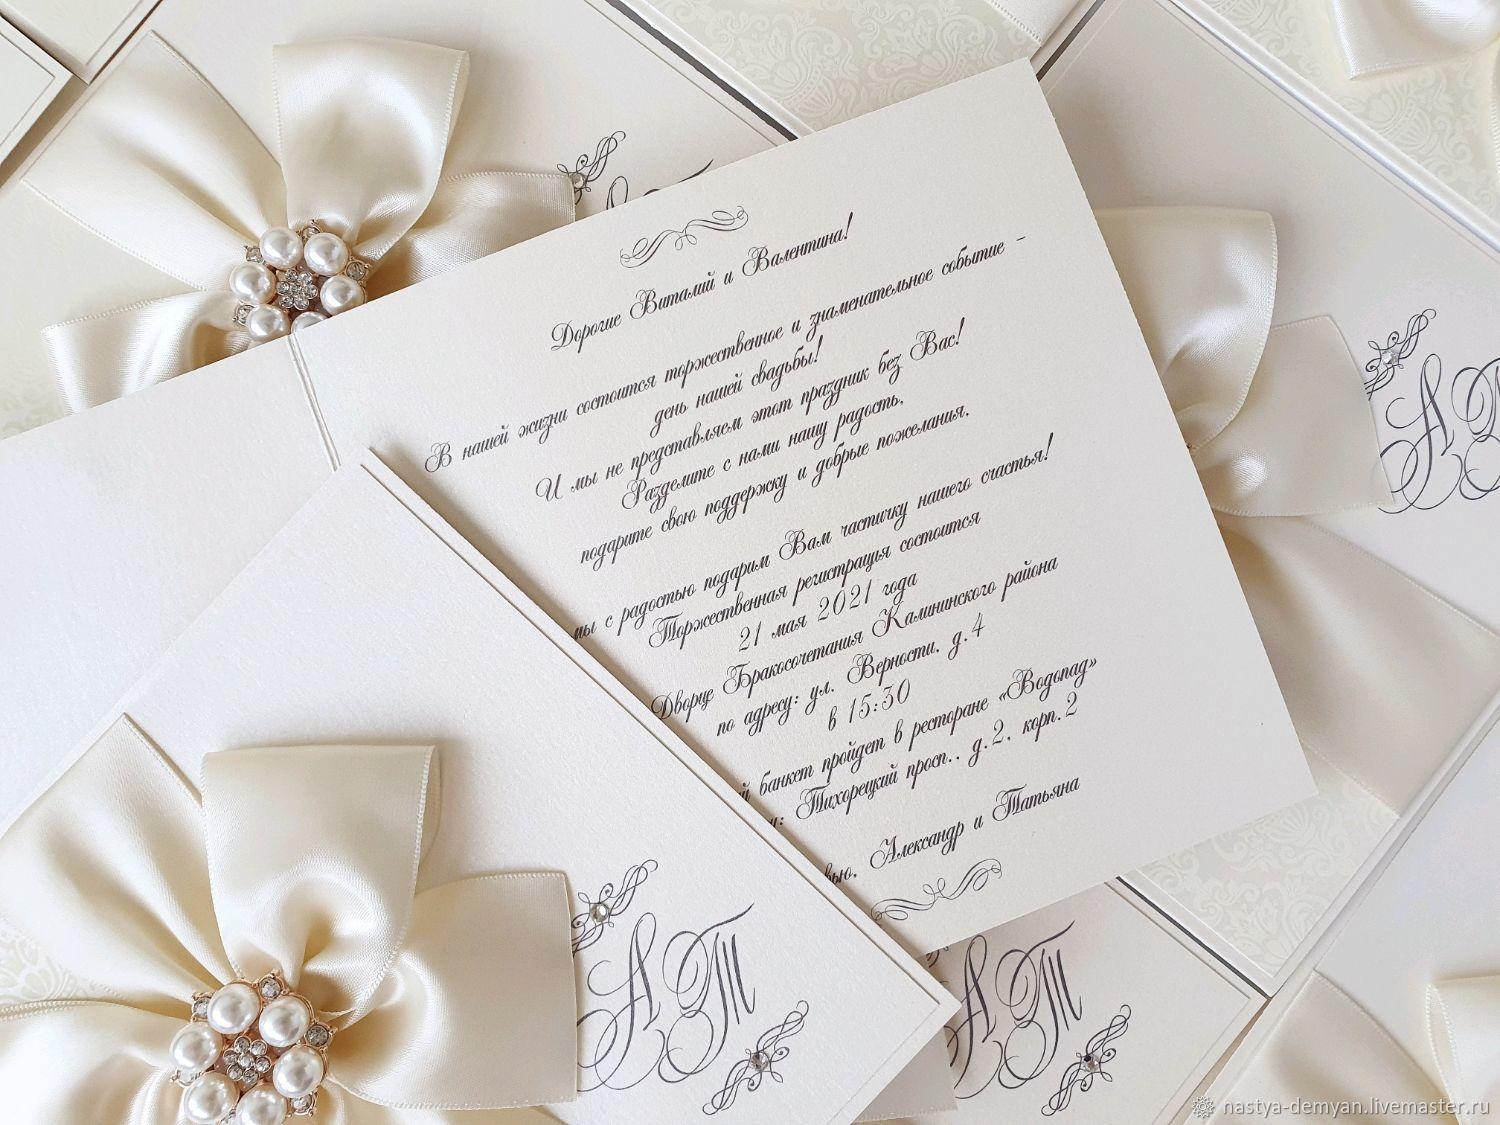 Дорогие Виталий и Валентина!
В нашей жизни состоится торжественное и знаменательное событие -
день нашей свадьбы!
И мы не представляем этот праздник без Вас!
Разделите с нами нашу радость,
подарите свою поддержку и добрые пожелания,
мы с радостью подарим Вам частичку нашего счастья!
Торжественная регистрация состоится
21 мая 2021 года
Дворце Бракосочетания Калининского района
по адресу: ул. Верности, д.4
в 15:30
й банкет пройдет в ресторане «Водопад»
у: Тихорецкий просп., д.2, корп.2
вью, Александр и Татьяна
АТ
АТ
АТ
nastya-demyan.livemaster.ru